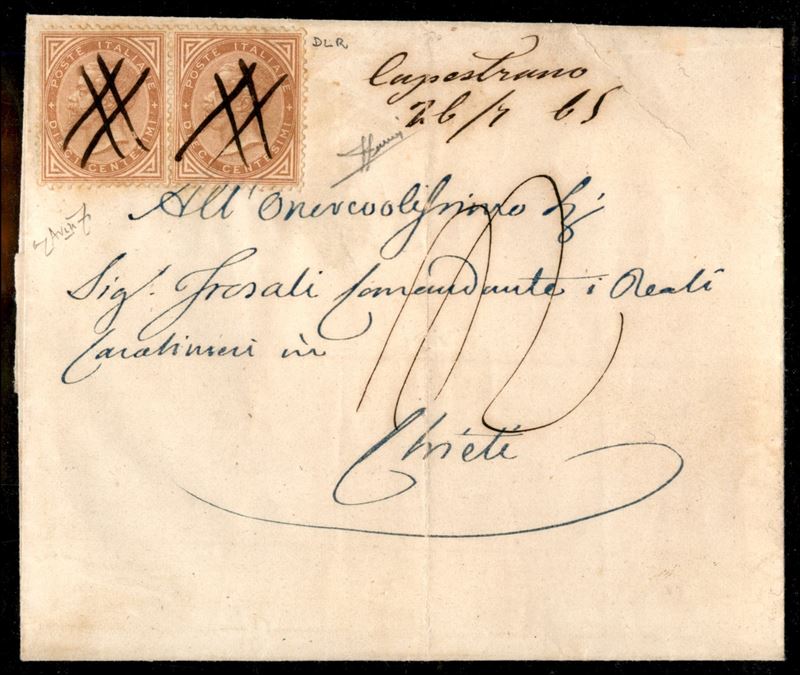 POSTE ITALIANE
DIECI CENTESIMI
POSTE ITALIANE
DIECI CENTESIMI
DLR
Capestrano
26/7 65
All' Onorevolissimo
Sig.r Frosali Comandante i Reali
Carabinieri in
Chieti